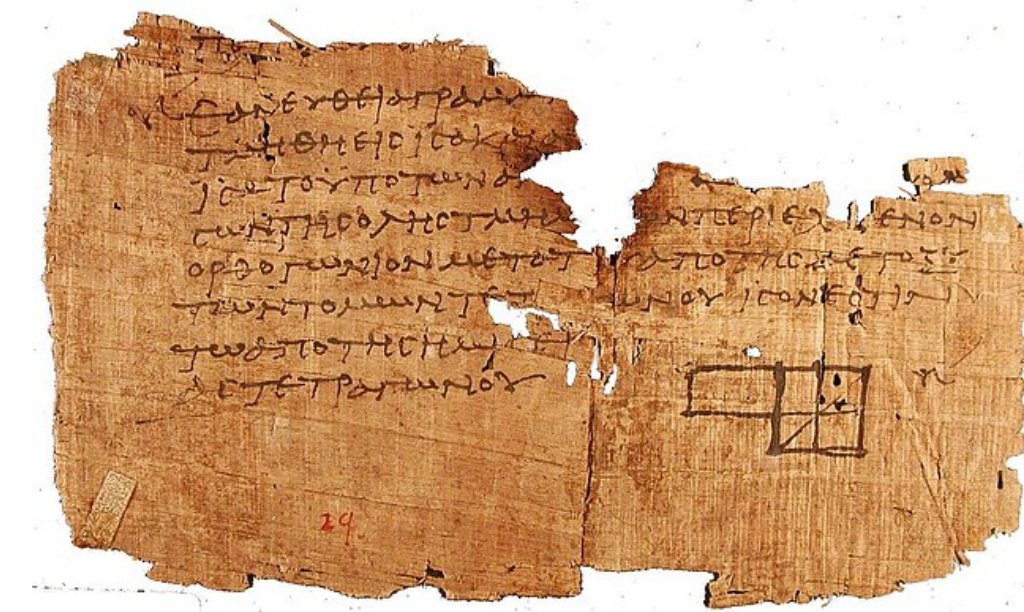 ΕΑΝ ΕΥΘΕΙΑ ΓΡΑΜ
ΤΜΗΘΗ ΕΙC ΙCΑ ΚΑΙ Α
ΙCΑ ΤΟ ΥΠΟ ΤΩΝ ΑΝ
CΩΝ ΤΗC ΟΛΗC ΤΜΗΜ ΩΝ ΠΕΡΙΕΧ ΕΝΟΝ
ΟΡΘΟΓΩΝΙΟΝ ΜΕΤΑ ΤΟΥ ΑΠΟ ΤΗC ΜΕΤΟΞΥ
ΤΩΝ ΤΟΜΩΝ ΤΕΤ ΩΝΟΥ ΙCΟΝ ΕCΤΙΝ
ΤΩ ΑΠΟ ΤΗC ΗΜΙ
ΑC ΤΕΤΡΑΓΩΝΟΥ
29